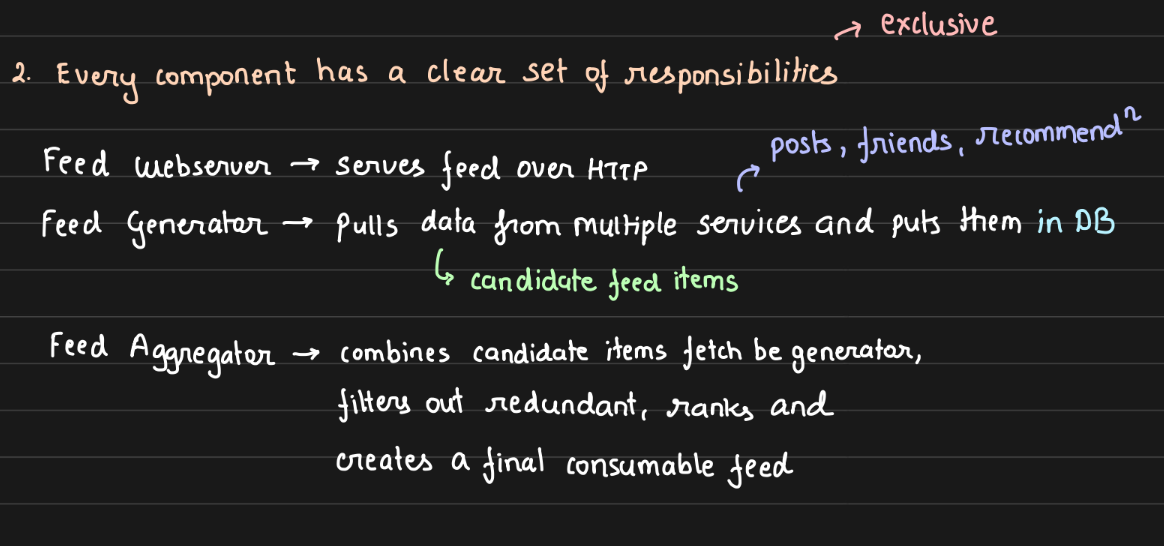 → exclusive
2. Every component has a clear set of responsibilities
posts, friends, recommendⁿ
Feed Webserver → serves feed over HTTP
Feed Generator → Pulls data from multiple services and puts them in DB
candidate feed items
Feed Aggregator → combines candidate items fetch be generator,
filters out redundant, ranks and
creates a final consumable feed